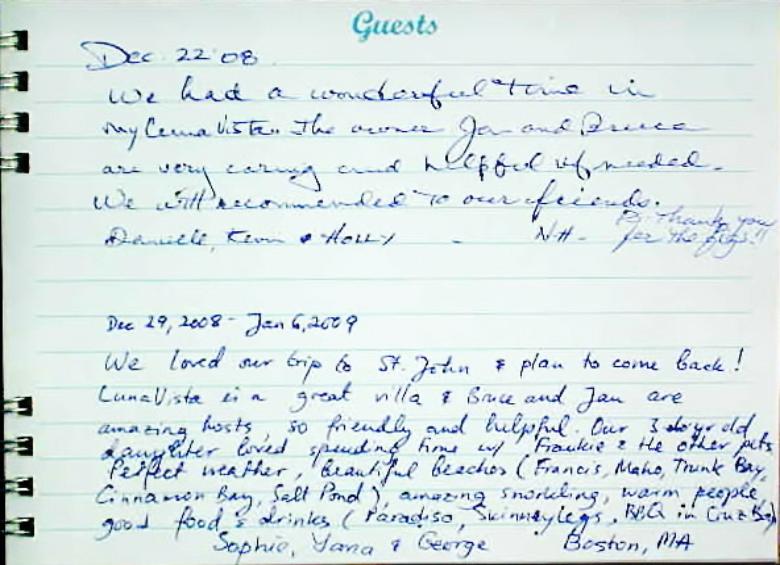 Guests
Dec. 22 '08
We had a wonderful time in
my Luna Vista. The owner Jan and Bruce
are very caring and helpful if needed.
We will recommended to our friends.
PS: Thank you
Danielle, Kevin & HOLLY - NH-
for the eggs!!
Dec 29, 2008 - Jan 6, 2009
We loved our trip to St. John & plan to come back!
LunaVista is a great villa & Bruce and Jan are
amazing hosts, so friendly and helpful. Our 3 yr old
daughter loved spending time w/ Frankie & the other pets.
Perfect weather, beautiful beaches (Francis, Maho, Trunk Bay,
Cinnamon Bay, Salt Pond), amazing snorkling, warm people,
good food & drinks (Paradiso, Skinneylegs, BBQ in Cruz Bay)
Sophie, Yana & George Boston, MA